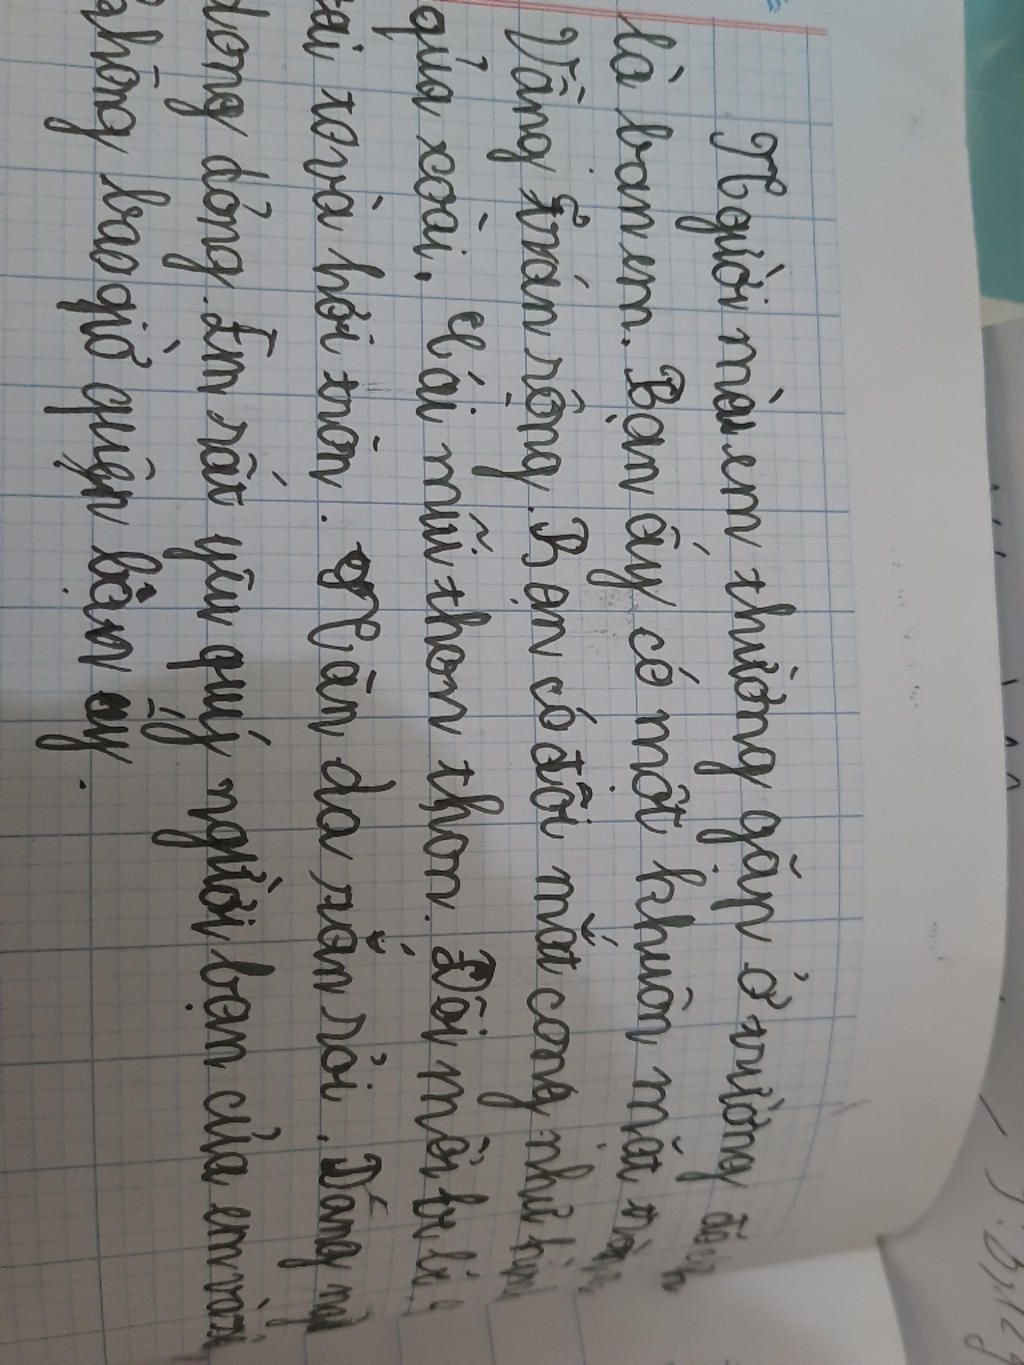 Người mà em thường gặp ở trường
là bạn em. Bạn ấy có một khuôn mặt
Vầng trán rộng. Bạn có đôi mắt cong như
quả xoài. Cái mũi thon thon. Đôi môi
và hơi tròn. Làn da rắn rỏi. Dáng
dong dỏng. Em rất yêu quý người bạn của em và
không bao giờ quên bạn ấy.